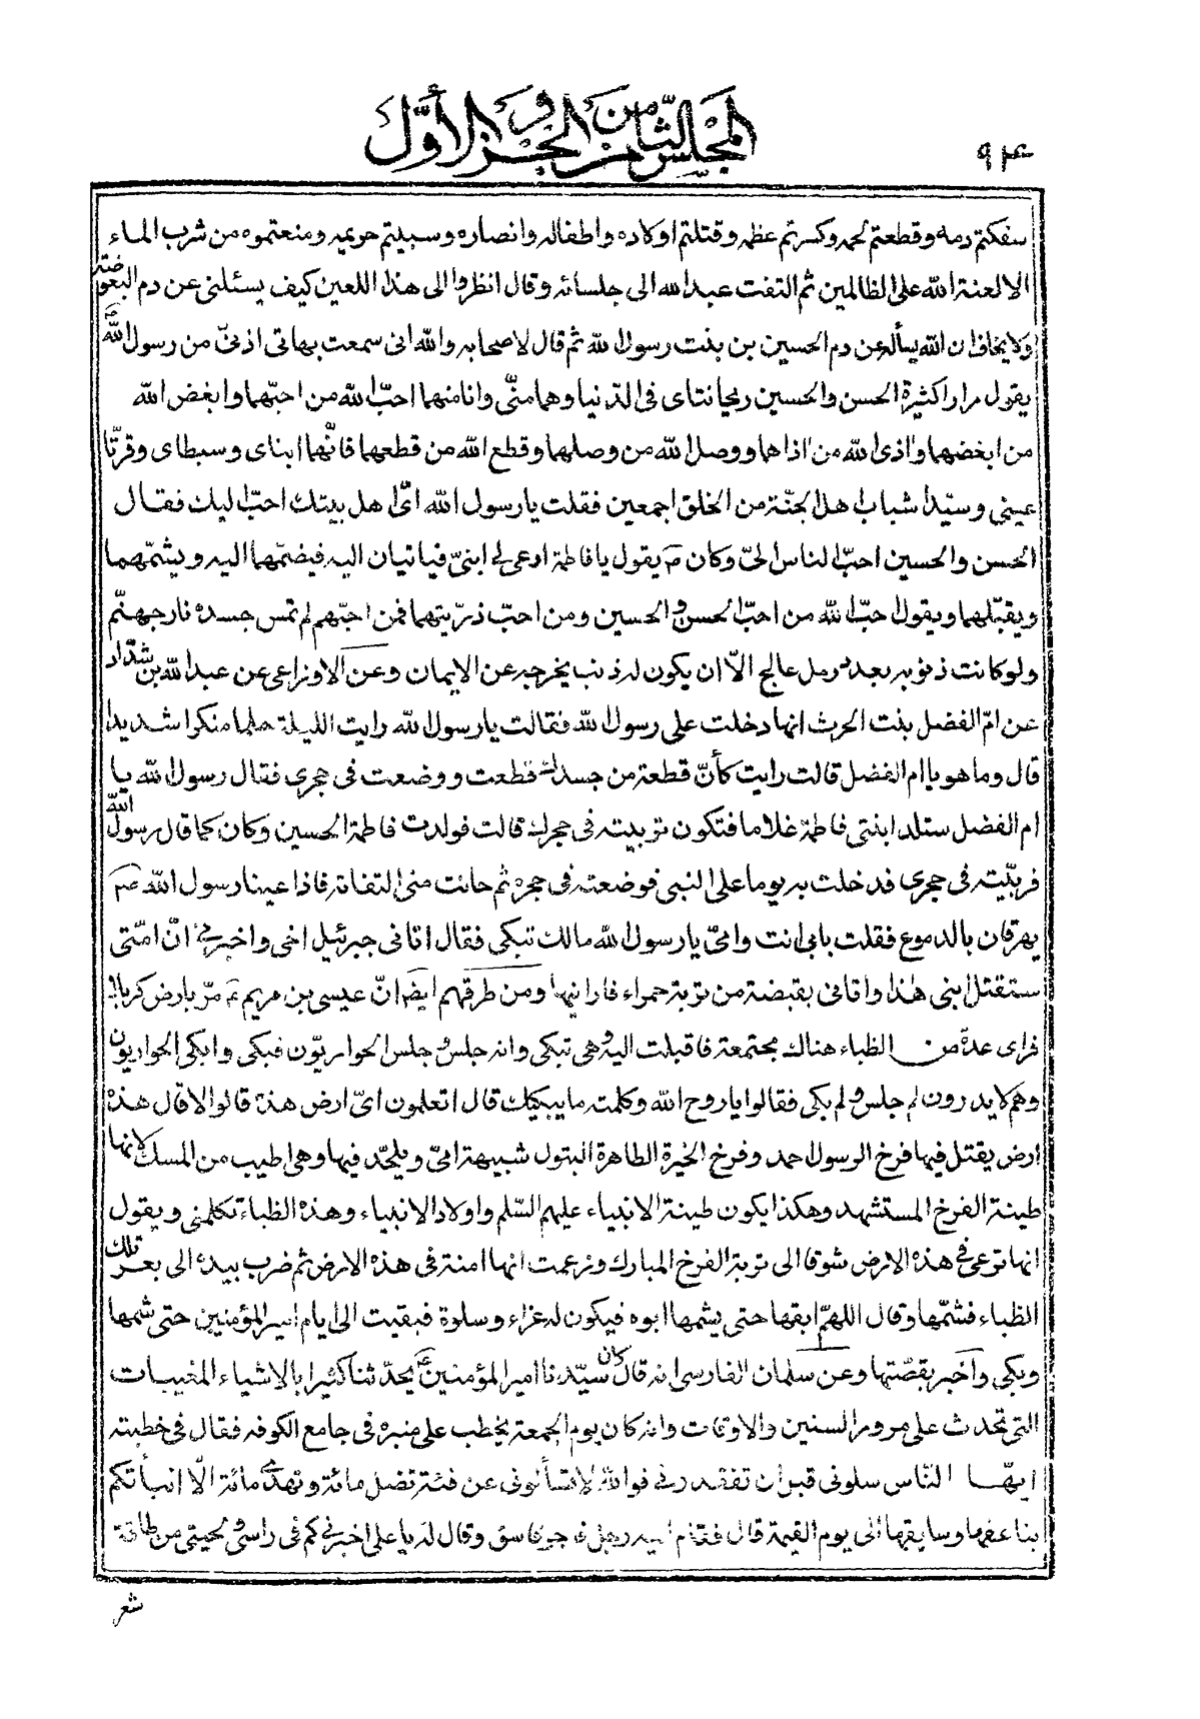 ٩٤
المجلس الثامن من الجزو الأول
سفكتم دمه وقطعتم لحمه وكسرتم عظمه وقتلتم اولاده واطفاله وانصاره وسبيتم حريمه ومنعتموه من شرب الماء
الا لعنة الله على الظالمين ثم التفت عبد الله الى جلسائه وقال انظروا الى هذا اللعين كيف يسئلنى عن دم البعوضة
ولا يخاف ان الله يسأله عن دم الحسين بن بنت رسول الله ثم قال لاصحابه والله انى سمعت بهاتى اذنىّ من رسول الله ص
يقول مرارا كثيرة الحسن والحسين ريحانتاى فى الدّنيا وهما منّى وانا منهما احبّ الله من احبّهما وابغض الله
من ابغضهما واذى الله من اذاهما ووصل الله من وصلهما وقطع الله من قطعهما فانّهما ابناى وسبطاى وقرتّا
عينى وسيّدا شباب اهل الجنّة من الخلق اجمعين فقلت يا رسول الله اىّ اهل بيتك احبّ اليك فقال
الحسن والحسين احبّ الناس الىّ وكان ص يقول يا فاطمة ادعى لى ابنىّ فياتيان اليه فيضمّهما اليه ويشمّهما
ويقبّلهما ويقول احبّ الله من احبّ الحسن والحسين ومن احبّ ذريّتهما فمن احبّهم لم تمس جسده نار جهنّم
ولو كانت ذنوبه بعدد رمل عالج الاّ ان يكون له ذنب يخرجه عن الايمان وعن الاوزاعى عن عبد الله بن شدّاد
عن امّ الفضل بنت الحرث انها دخلت على رسول الله فقالت يا رسول الله رايت الليلة حلما منكرا شديدا
قال وما هو يا ام الفضل قالت رايت كأنّ قطعة من جسدك قطعت ووضعت فى حجرى فقال رسول الله يا
ام الفضل ستلد ابنتى فاطمة غلاما فتكون تربيته فى حجرك قالت فولدت فاطمة الحسين وكان كما قال رسول الله
فربّيته فى حجرى فدخلت به يوما على النبى فوضعته فى حجره ثم حانت منى التفاتة فاذا عينا رسول الله ص
يهرقان بالدموع فقلت بابى انت وامىّ يا رسول الله مالك تبكى فقال اتانى جبرئيل اخى واخبرنى انّ امّتى
ستقتل ابنى هذا واتانى بقبضة من تربة حمراء فارانيها ومن طرقهم ايضا انّ عيسى بن مريم ع مرّ بارض كربلا
فراى عدة من الظباء هناك مجتمعة فاقبلت اليه وهى تبكى وانه جلس وجلس الحواريّون فبكى وابكى الحواريون
وهم لا يدرون لم جلس ولم بكى فقالوا يا روح الله وكلمته ما يبكيك قال اتعلمون اىّ ارض هذه قالوا لا قال هذه
ارض يقتل فيها فرخ الرسول احمد وفرخ الخيرة الطاهرة البتول شبيهة امىّ ويلحد فيها وهى اطيب من المسك لانها
طينة الفرخ المستشهد وهكذا يكون طينة الانبياء عليهم السّلم واولاد الانبياء وهذه الظباء تكلمنى ويقول
انها ترعى فى هذه الارض شوقا الى تربة الفرخ المبارك وزعمت انها امنة فى هذه الارض ثم ضرب بيده الى بعر تلك
الظباء فشمّها وقال اللهمّ ابقها حتى يشمها ابوه فيكون له عزاء وسلوة فبقيت الى ايام امير المؤمنين حتى شمها
وبكى واخبر بقصّتها وعن سلمان الفارسى انه قال كان سيّدنا امير المؤمنين ع يحدّثنا كثيرا بالاشياء المغيبات
التى تحدث على مرور السنين والاوقات وانه كان يوم الجمعة يخطب على منبره فى جامع الكوفه فقال فى خطبته
ايهّا النّاس سلونى قبل ان تفقدونى فو الله لا تسألونى عن فئة تضل مائة وتهدى مائة الّا انبأتكم
بناعقها وسايقها الى يوم القيمة قال فقام اليه رجل فاسق وقال له يا على اخبرنى كم فى راسى ولحيتى من طاقة
شعر